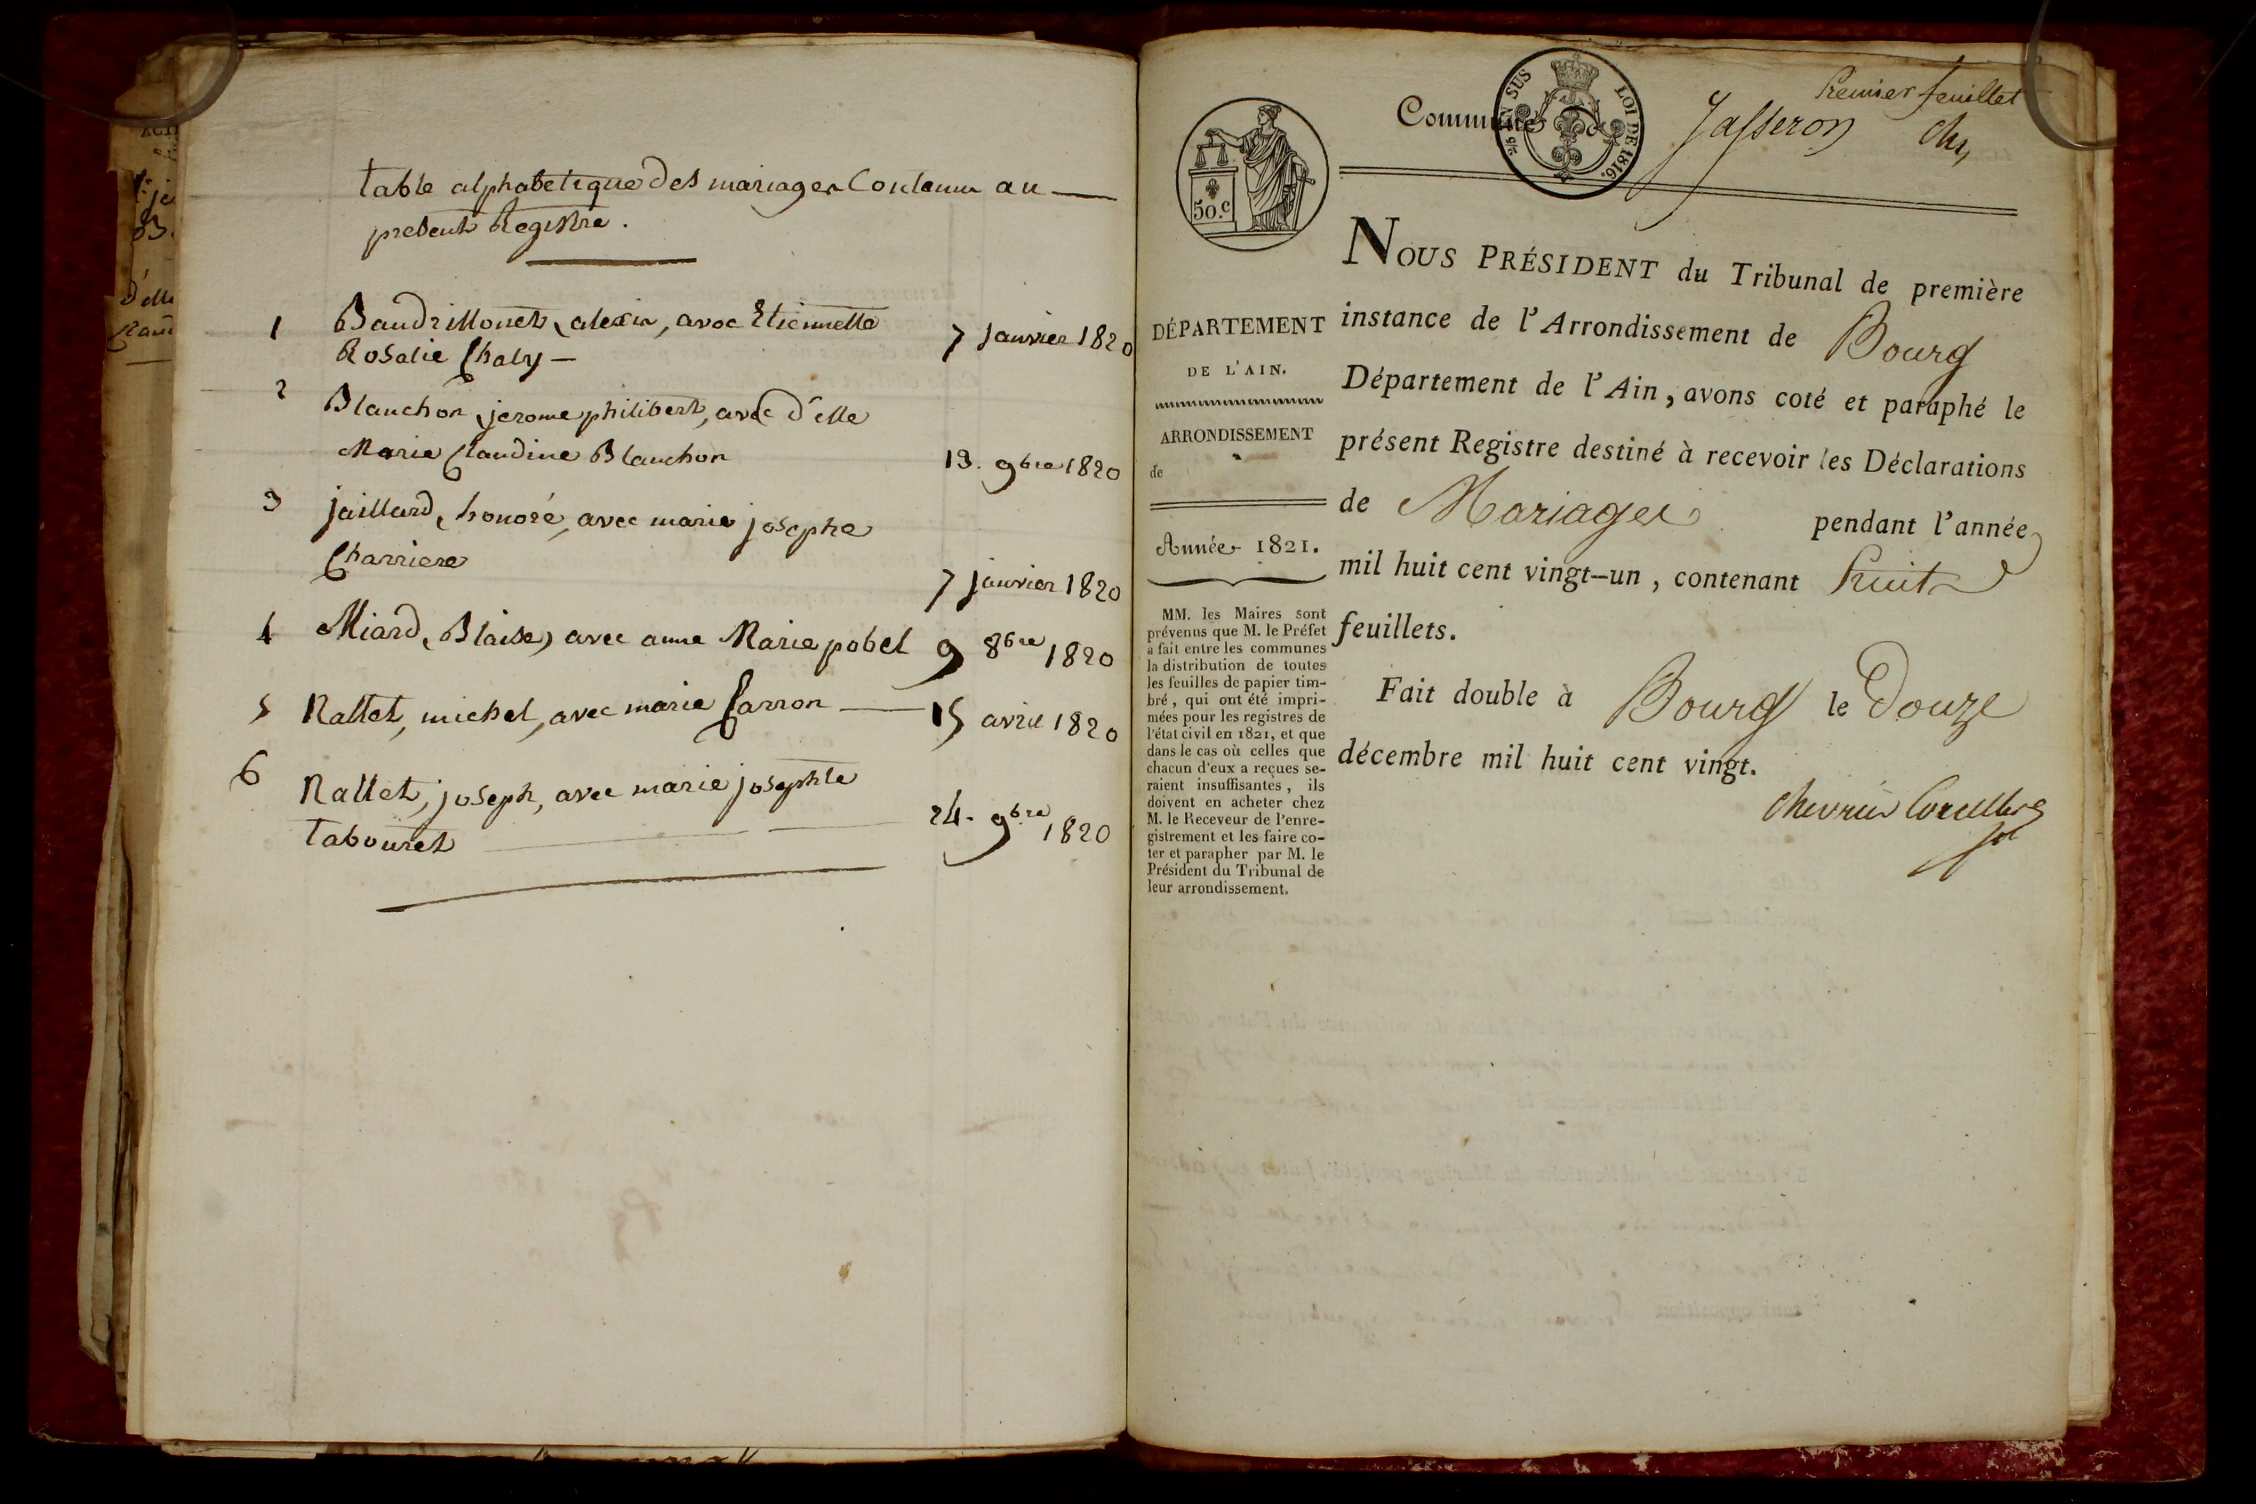 table alphabetique des mariages Contenu au
present Registre.
1 Baudrillonet, alexis, avec Etiennette
Rosalie Chaly — 7 Janvier 1820
2 Blanchon, jerome philibert, avec d'elle
Marie Claudine Blanchon 13. 9bre 1820
3 jaillard, honoré, avec marie josephe
Charriere 7 janvier 1820
4 Miard, Blaise, avec anne Marie pobel 9 8bre 1820
5 Nallet, michel, avec marie Carron — 15 avril 1820
6 Nallet, joseph, avec marie josephte
Tabouret 24. 9bre 1820
Premier feuillet
Commune Jasseron
LOI DE 1816.
50.c
NOUS PRÉSIDENT du Tribunal de première
instance de l'Arrondissement de Bourg
Département de l'Ain, avons coté et paraphé le
présent Registre destiné à recevoir les Déclarations
de Mariages pendant l'année
mil huit cent vingt-un, contenant huit
feuillets.
Fait double à Bourg le Douze
décembre mil huit cent vingt.
DÉPARTEMENT
DE L'AIN.
ARRONDISSEMENT
de
Année 1821.
MM. les Maires sont
prévenus que M. le Préfet
a fait entre les communes
la distribution de toutes
les feuilles de papier tim-
bré, qui ont été impri-
mées pour les registres de
l'état civil en 1821, et que
dans le cas où celles que
chacun d'eux a reçues se-
raient insuffisantes, ils
doivent en acheter chez
M. le Receveur de l'enre-
gistrement et les faire co-
ter et parapher par M. le
Président du Tribunal de
leur arrondissement.